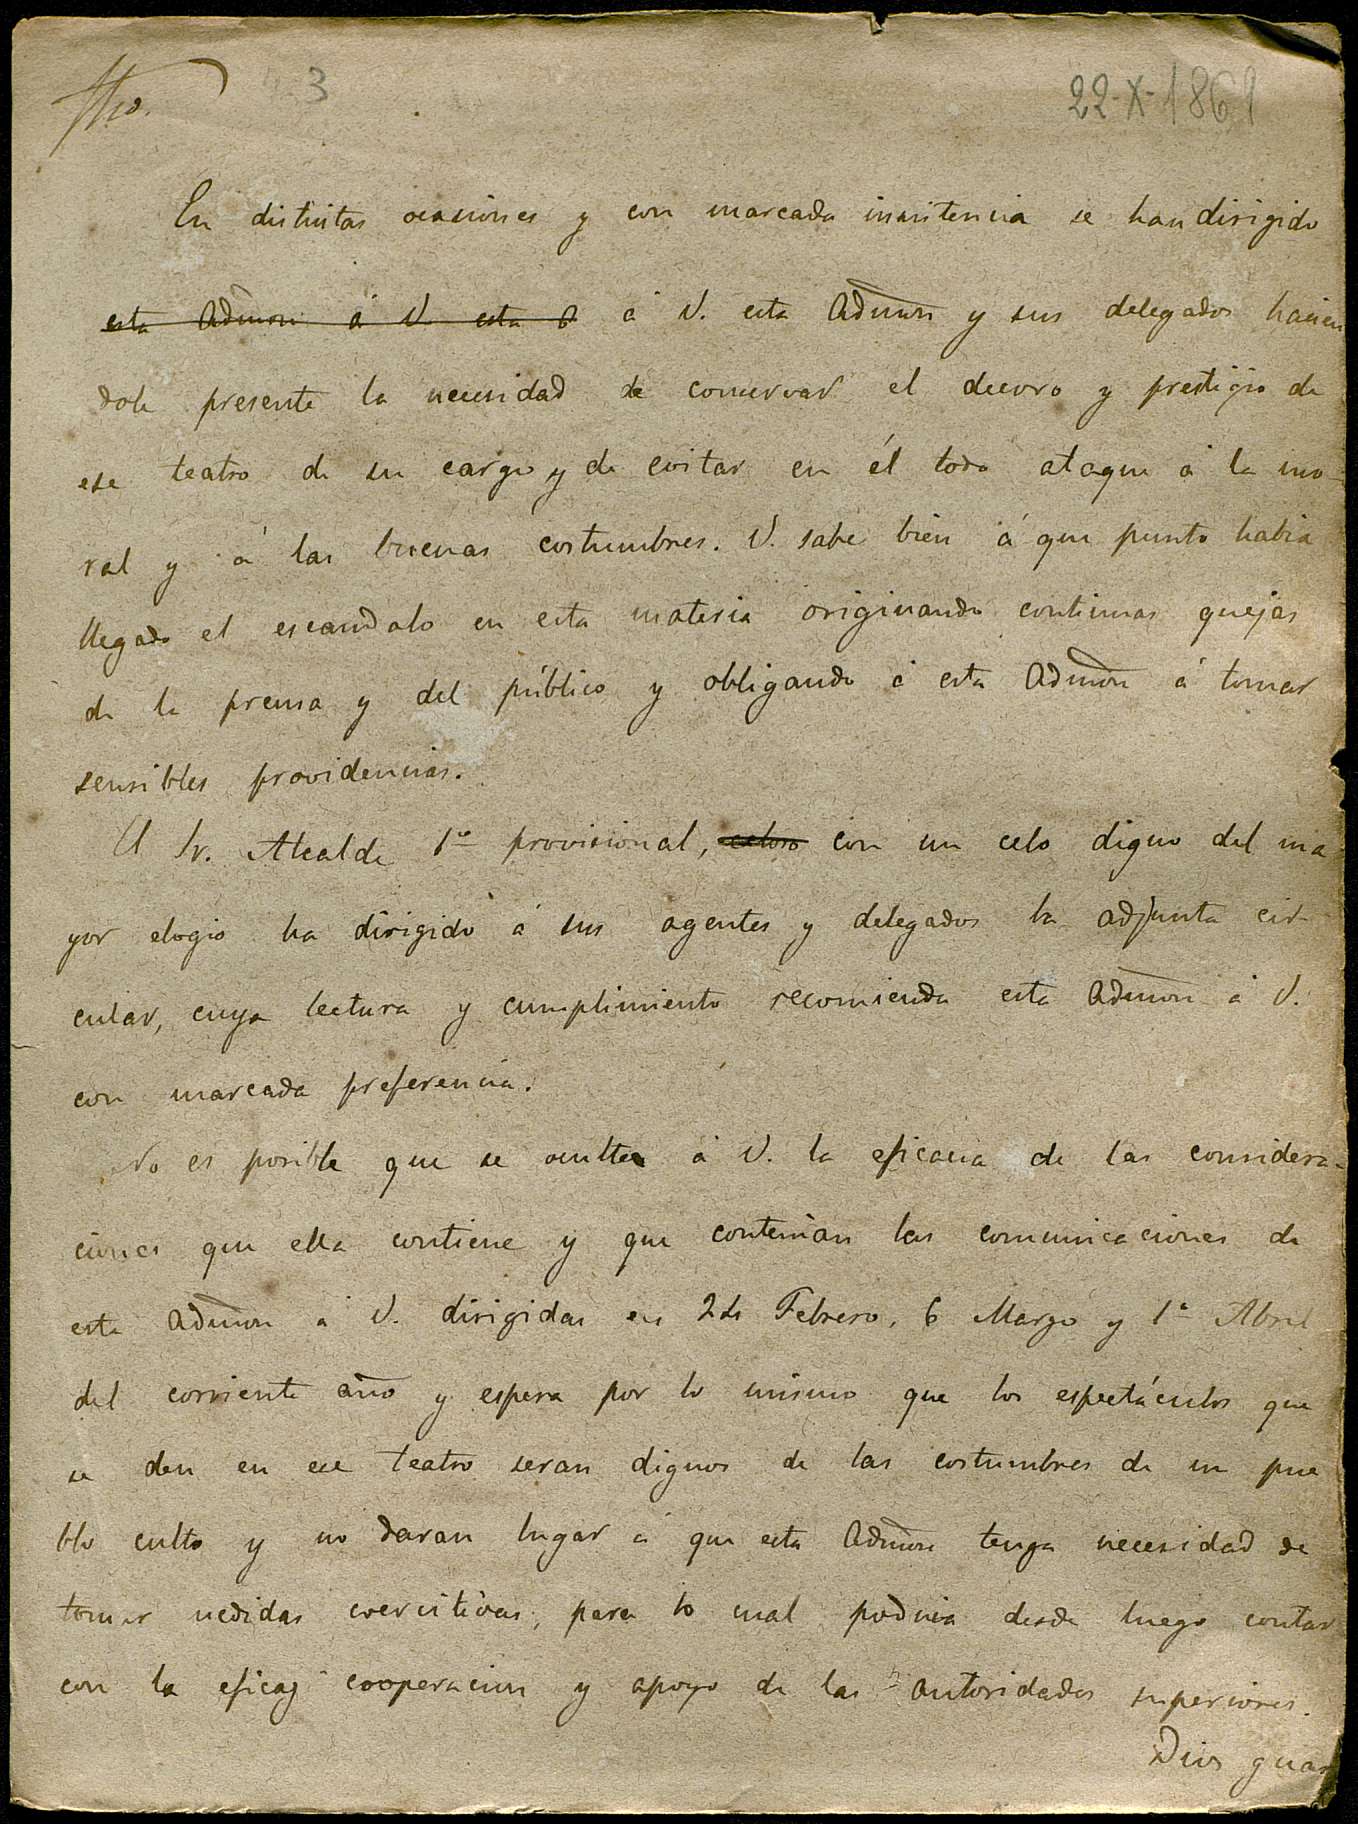 fho.
3
22-X-1869
En distintas ocasiones y con marcada insistencia se han dirigido
esta Admon á V. esta á V. esta Admon y sus delegados hacien
dole presente la necesidad de conservar el decoro y prestigio de
ese teatro de su cargo, y de evitar en él todo ataque á la mo
ral y á las buenas costumbres. V. sabe bien á que punto habia
llegado el escandalo en esta materia originando continuas quejas
de la prensa y del público y obligando á esta Admon á tomar
sensibles providencias.
El Sr. Alcalde 1º provisional, celoso con un celo digno del ma
yor elogio ha dirigido á sus agentes y delegados la adjunta cir-
cular, cuya lectura y cumplimiento recomienda esta Admon á V.
con marcada preferencia.
No es posible que se oculte á V. la eficacia de las considera-
ciones que ella contiene y que contenian las comunicaciones de
esta Admon á V. dirigidas en 24 Febrero, 6 Marzo y 1º Abril
del corriente año y espera por lo mismo que los espectáculos que
se den en ese teatro seran dignos de las costumbres de un pue
blo culto y no daran lugar á que esta Admon tenga necesidad de
tomar medidas coercitivas, para lo cual podria desde luego contar
con la eficaz cooperacion y apoyo de las autoridades superiores.
Dios guar